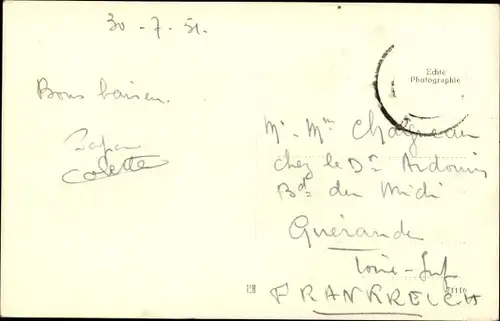 30 - 7 - 51.
Bons baisers.
Papa
Colette
Echte
Photographie
Mr - Mme Chaigneau
chez le Dr Ardouin
Bd du Midi
Guérande
Loire-Inf
FRANKREICH